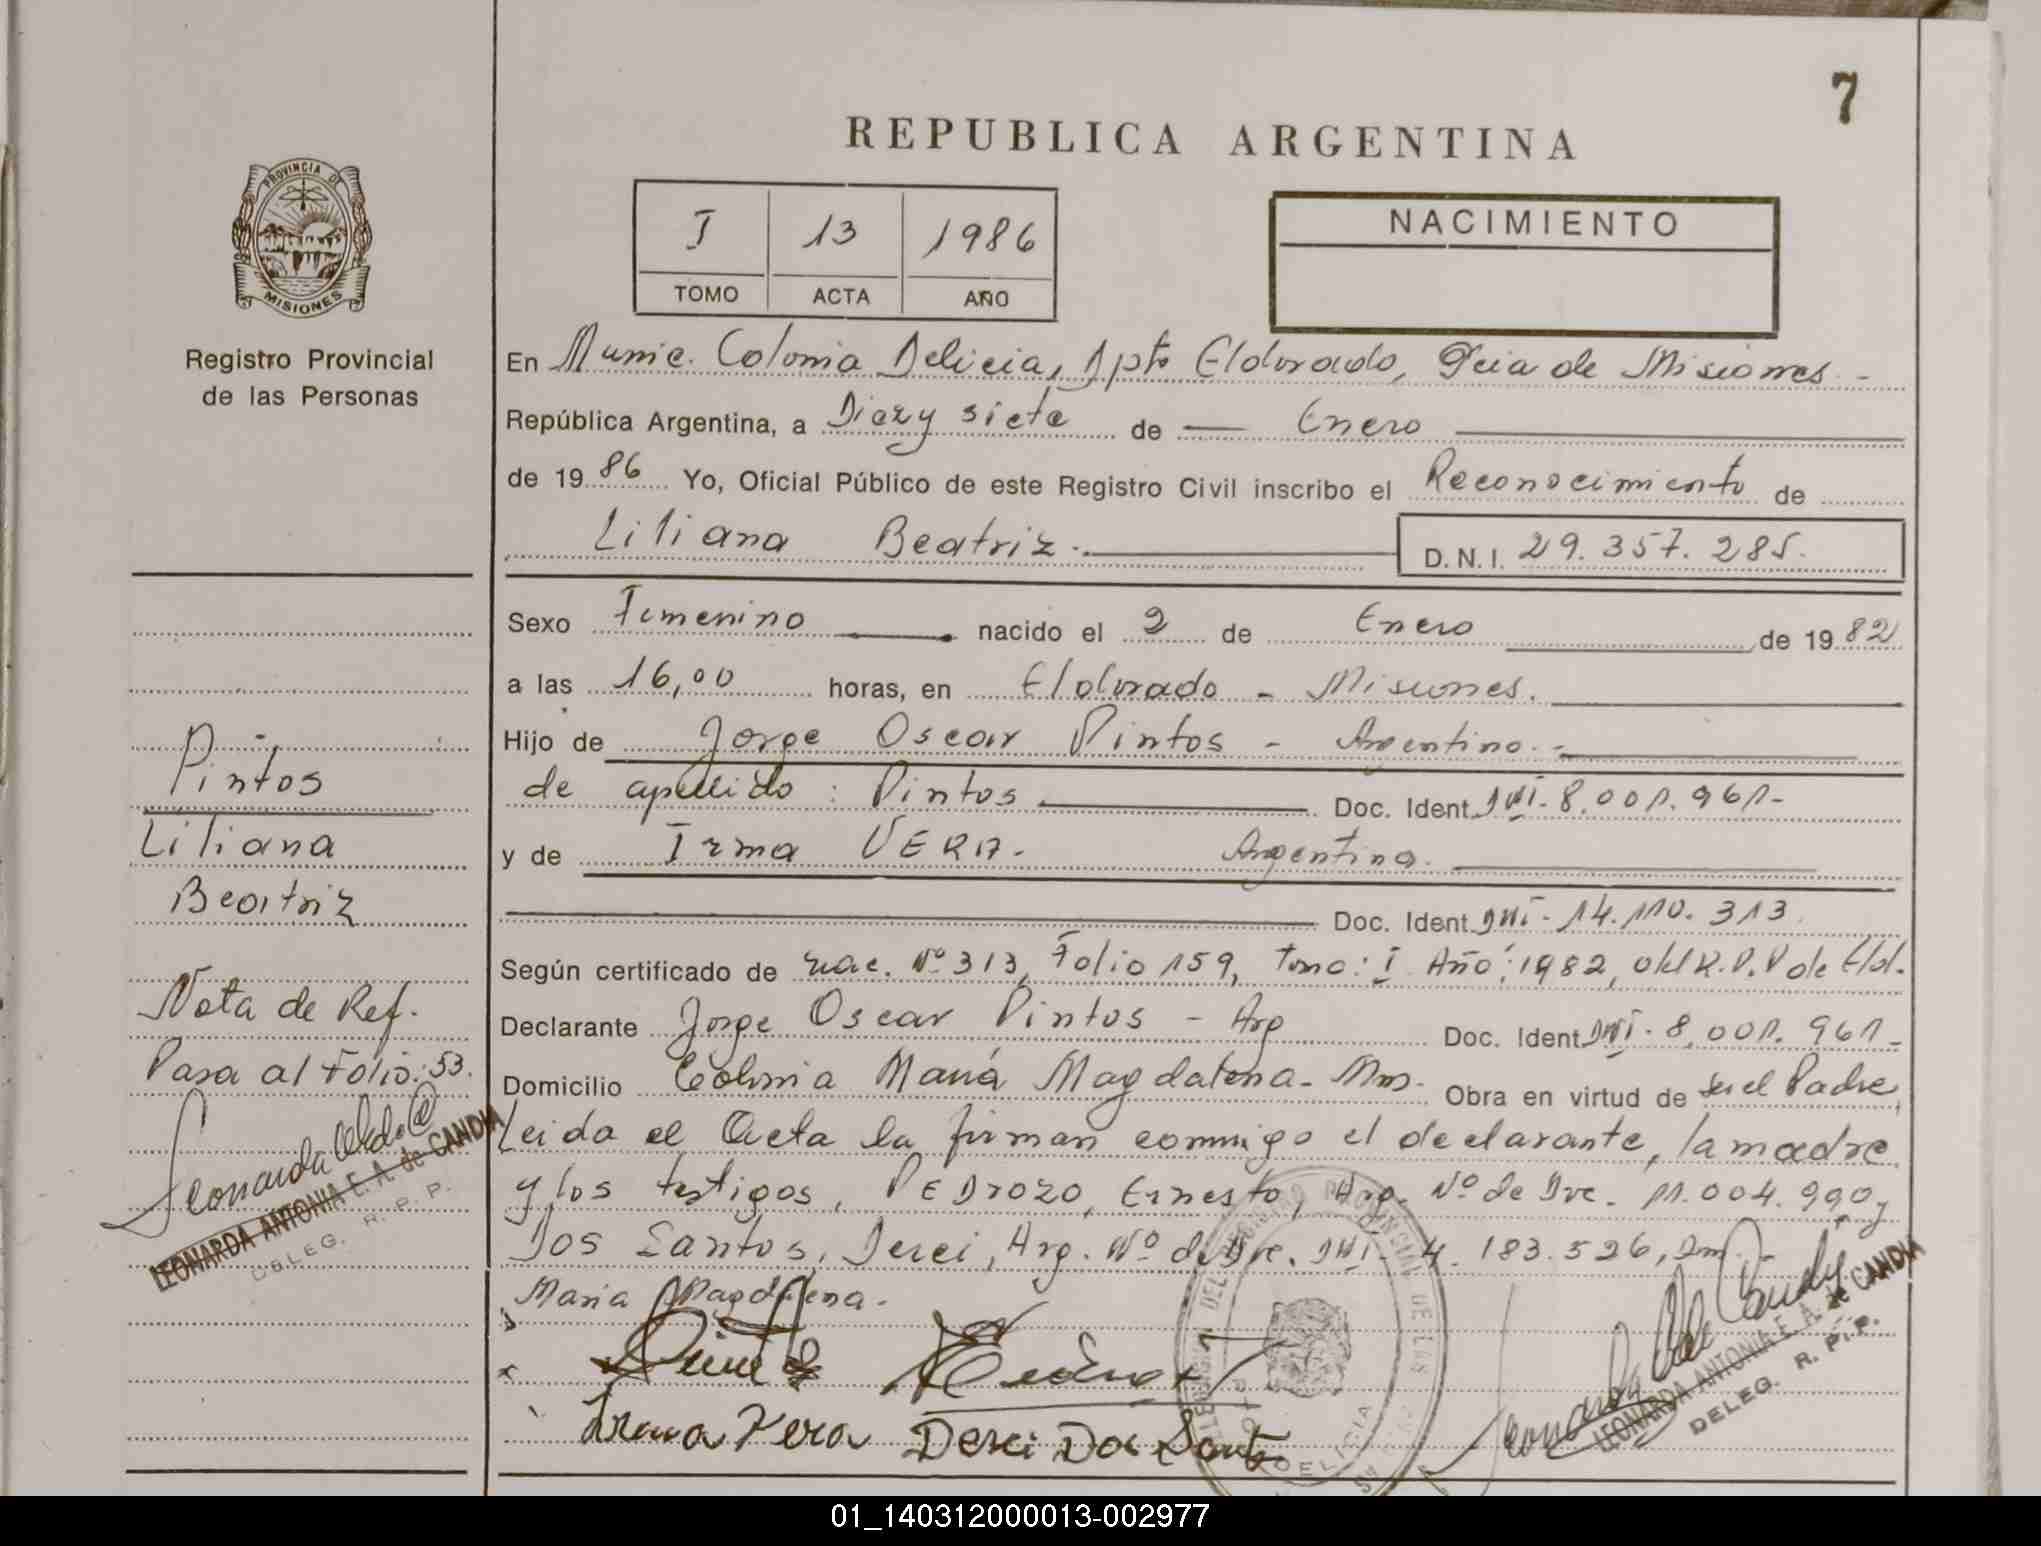 7
REPUBLICA ARGENTINA
PROVINCIA DE
MISIONES
Registro Provincial
de las Personas
I 13 1986
TOMO ACTA AÑO
NACIMIENTO
En Munic. Colonia Delicia, Dpto Eldorado, Pcia de Misiones -
República Argentina, a Diezy siete de — Enero
de 19 86 Yo, Oficial Público de este Registro Civil inscribo el Reconocimiento de
Liliana Beatriz.- D.N.I. 29.357.285.
Sexo Femenino nacido el 2 de Enero de 19 82
a las 16,00 horas, en Eldorado - Misiones.
Hijo de Jorge Oscar Pintos - Argentino.-
de apellido: Pintos Doc. Ident. DNI-8.001.961-
y de Irma VERA. Argentina.
Doc. Ident. DNI-14.110.313.
Según certificado de nac. Nº 313, Folio 159, Tomo: I Año: 1982, del R.P.P de Eld.
Declarante Jorge Oscar Pintos - Arg Doc. Ident DNI-8.001.961-
Domicilio Colonia María Magdalena- Mns. Obra en virtud de ser el Padre
Leida el Acta la firman conmigo el declarante, la madre
y los testigos, PEDrozo, Ernesto, Arg. Nº de Dre. 11.004.990 y
Dos Santos, Derci, Arg. Nº de Dre. DNI- 4.183.526, Dm.-
Maria Magdalena.-
Irma Vera Derci Dos Santos
LEONARDA ANTONIA E. A. de CANDIA
DELEG. R. P. P.
Pintos
Liliana
Beatriz
Nota de Ref.
Pasa al Folio: 53.
LEONARDA ANTONIA E. A. de CANDIA
DELEG. R. P. P.
DELICIA
01_140312000013-002977